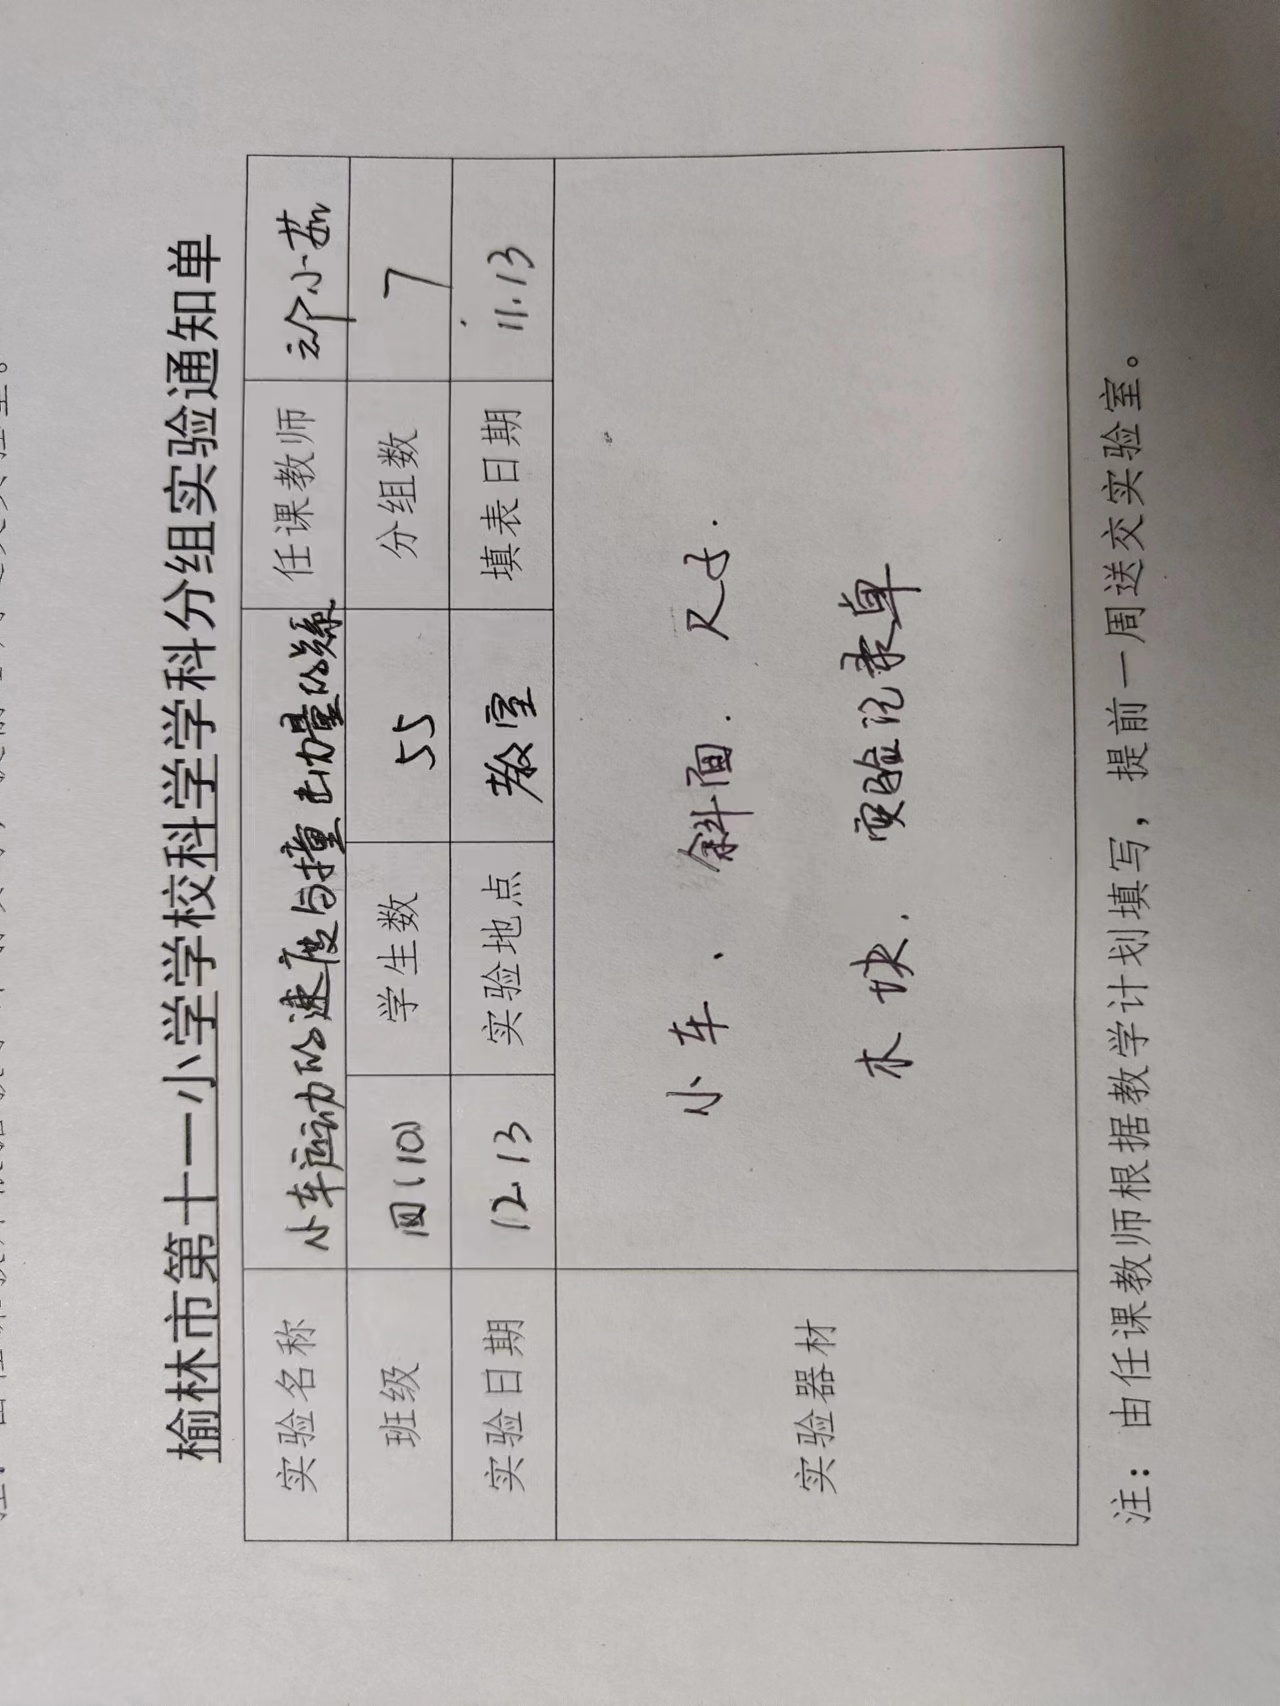 榆林市第十一小学学校科学学科分组实验通知单
实验名称 小车运动的速度与撞击力量的关系 任课教师 小茹
班级 四(10) 学生数 55 分组数 7
实验日期 12.13 实验地点 教室 填表日期 11.13
实验器材 小车、斜面. 尺子.
木块. 实验记录单
注：由任课教师根据教学计划填写，提前一周送交实验室。